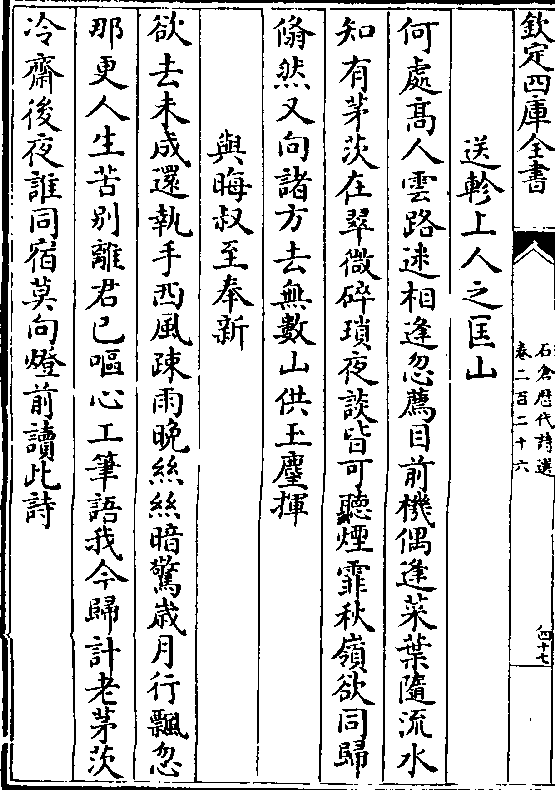 欽定四庫全書
石倉歴代詩選
卷二百二十六
四十七
送軫上人之匡山
何處髙人雲路迷相逢忽薦目前機偶逢菜葉隨流水
知有茅茨在翠微碎瑣夜談皆可聽煙霏秋嶺欲同歸
翛然又向諸方去無數山供玉麈揮
與晦叔至奉新
欲去未成還執手西風疎雨晚絲絲暗驚歲月行飄忽
那更人生苦别離君已嘔心工筆語我今歸計老茅茨
冷齋後夜誰同宿莫向燈前讀此詩